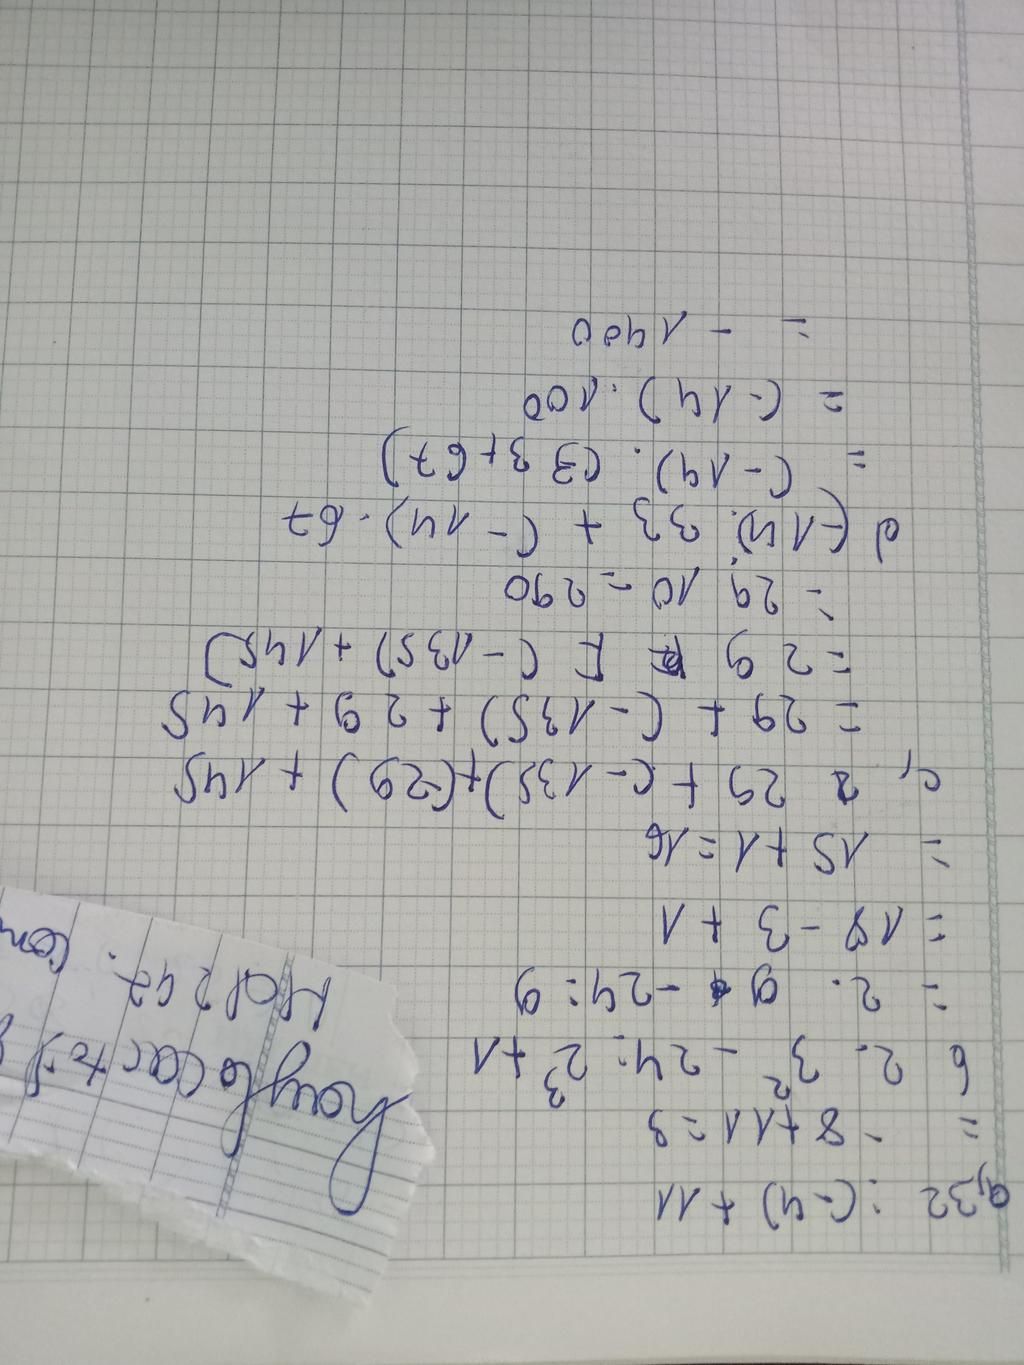 a, 32 : (-4) + 11
= - 8 + 11 = 3
b 2. 3² - 24: 2³ + 1
= 2. 9 - 24: 9
= 18 - 3 + 1
= 15 + 1 = 16
c, 29 + (-135) + (-29) + 145
= 29 + (-135) + 29 + 145
= 29 [(-135) + 145)
= 29. 10 = 290
d (-14). 33 + (-14). 67
= (-14). (33 + 67)
= (-14). 100
= - 1400